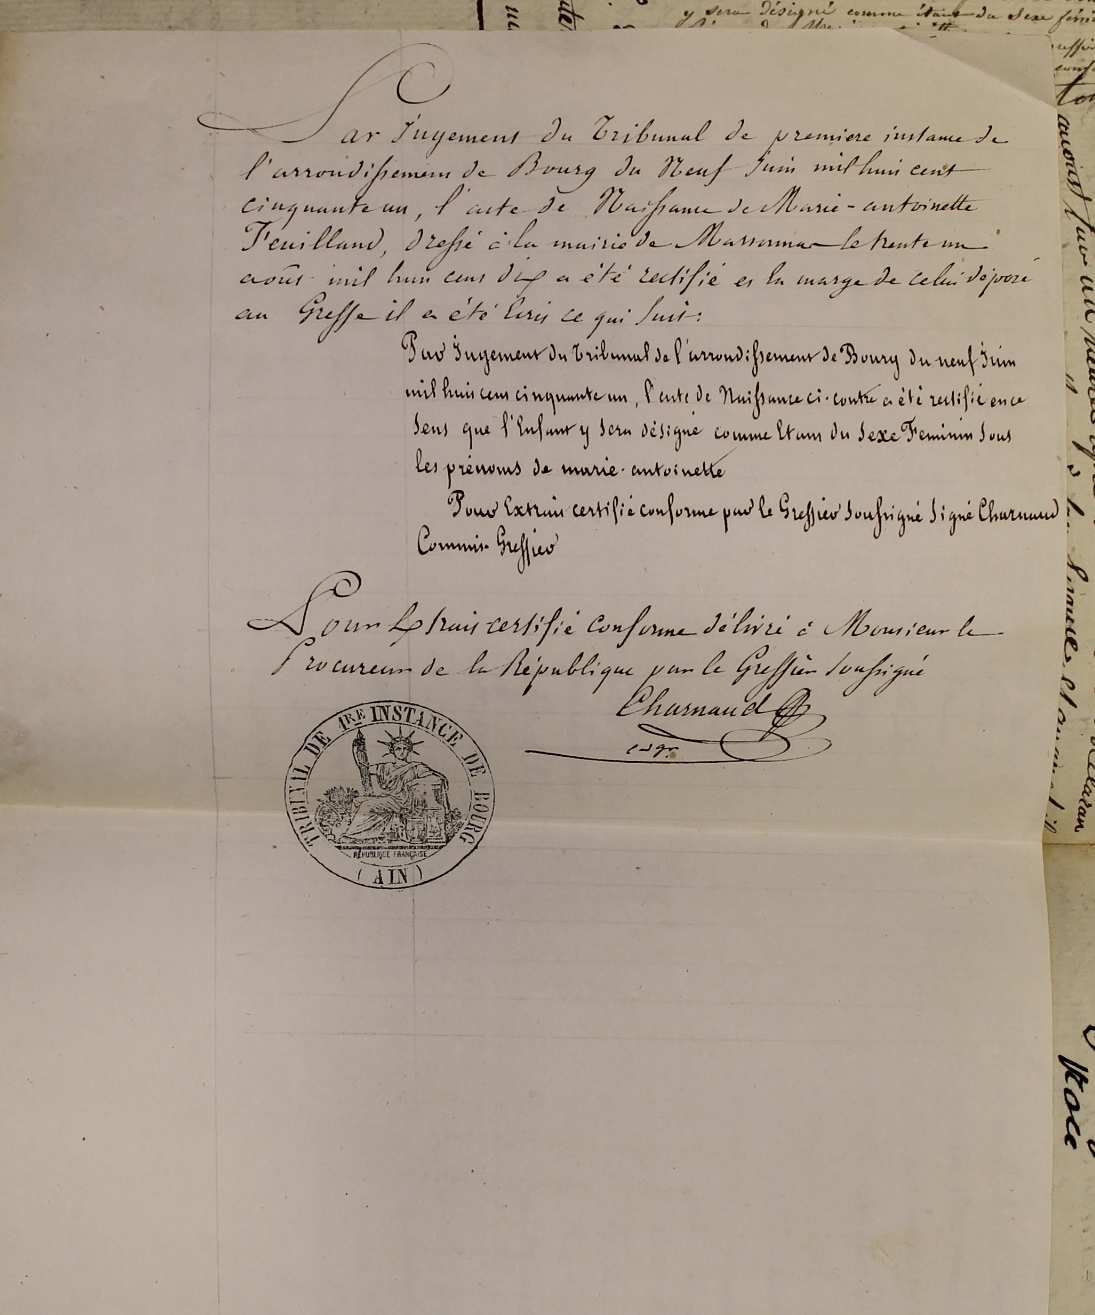 y sera désigné comme étant du sexe fémi
Par Jugement du Tribunal de premiere instance de
l'arrondissement de Bourg du Neuf Juin mil huit cent
cinquante un, l'acte de Naissance de Marie-antoinette
Feuilland, dressé à la mairie de Marsonnas le trente un
août mil huit cent dix a été rectifié et en marge de celui déposé
au Greffe il a été Ecrit ce qui Suit:
Par Jugement du Tribunal de l'arrondissement de Bourg du neuf Juin
mil huit cent cinquante un, l'acte de Naissance ci-contre a été rectifié en ce
Sens que l'Enfant y Sera désigné comme Etant du Sexe Feminin Sous
les prénoms de marie-antoinette
Pour Extrait certifié conforme par le Greffier Soussigné Signé Charnaud
Commis-Greffier
Pour Extrait certifié conforme délivré à Monsieur le
Procureur de la République par le Greffier Soussigné
Charnaud
TRIBUNAL DE 1RE INSTANCE DE BOURG
RÉPUBLIQUE FRANÇAISE
(AIN)